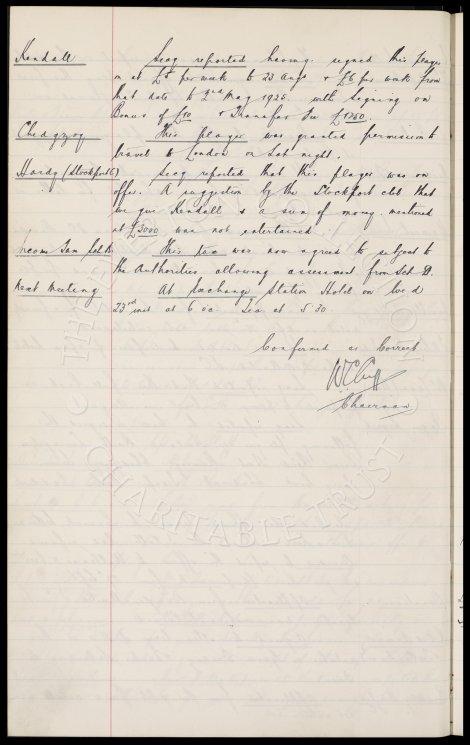 Kendall Secy reported having signed this player
on at £5 per week to 23 Aug & £6 per week from
that date to 2nd May 1925 with signing on
Bonus of £10 & Transfer fee £1250.
Chedgzoy This player was granted permission to
travel to London on Sat night.
Hardy (Stockport C) Secy reported that this player was on
offer. A suggestion by the Stockport club that
we give Kendall & a sum of money mentioned
at £3000 was not entertained
Income Tax This tax was now agreed to subject to
the Authorities allowing assessment from Sch D.
Next Meeting At Exchange Station Hotel on Wed
23rd inst at 6 oc. tea at 5.30
Confirmed as Correct
W C Cuff
Chairman
CHARITABLE TRUST